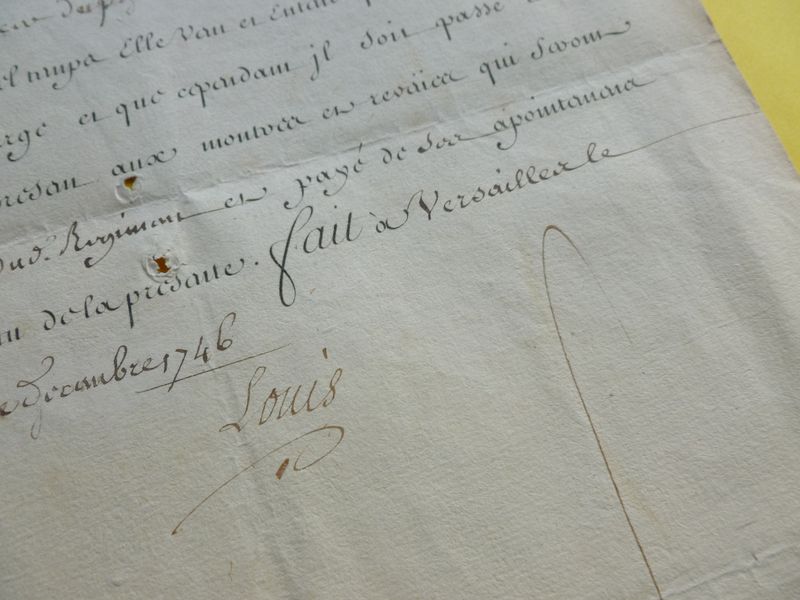 Elle Veut et Entend
et que cependant jl soit passé
présent aux montres et reveües qui Seront
dud. Regiment et payé de Ses apointemens
de la présente. fait a Versailles le
Decembre 1746
Louis